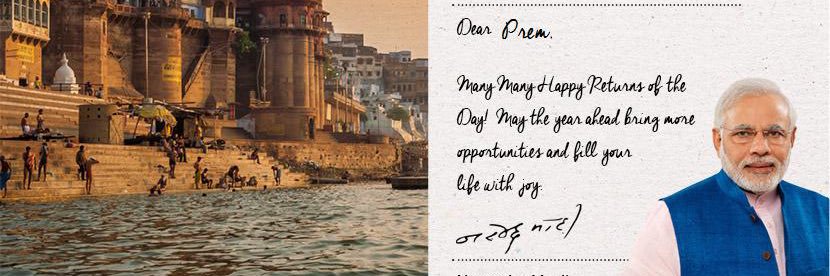 Dear Prem,
Many Many Happy Returns of the
Day! May the year ahead bring more
opportunities and fill your
life with joy.